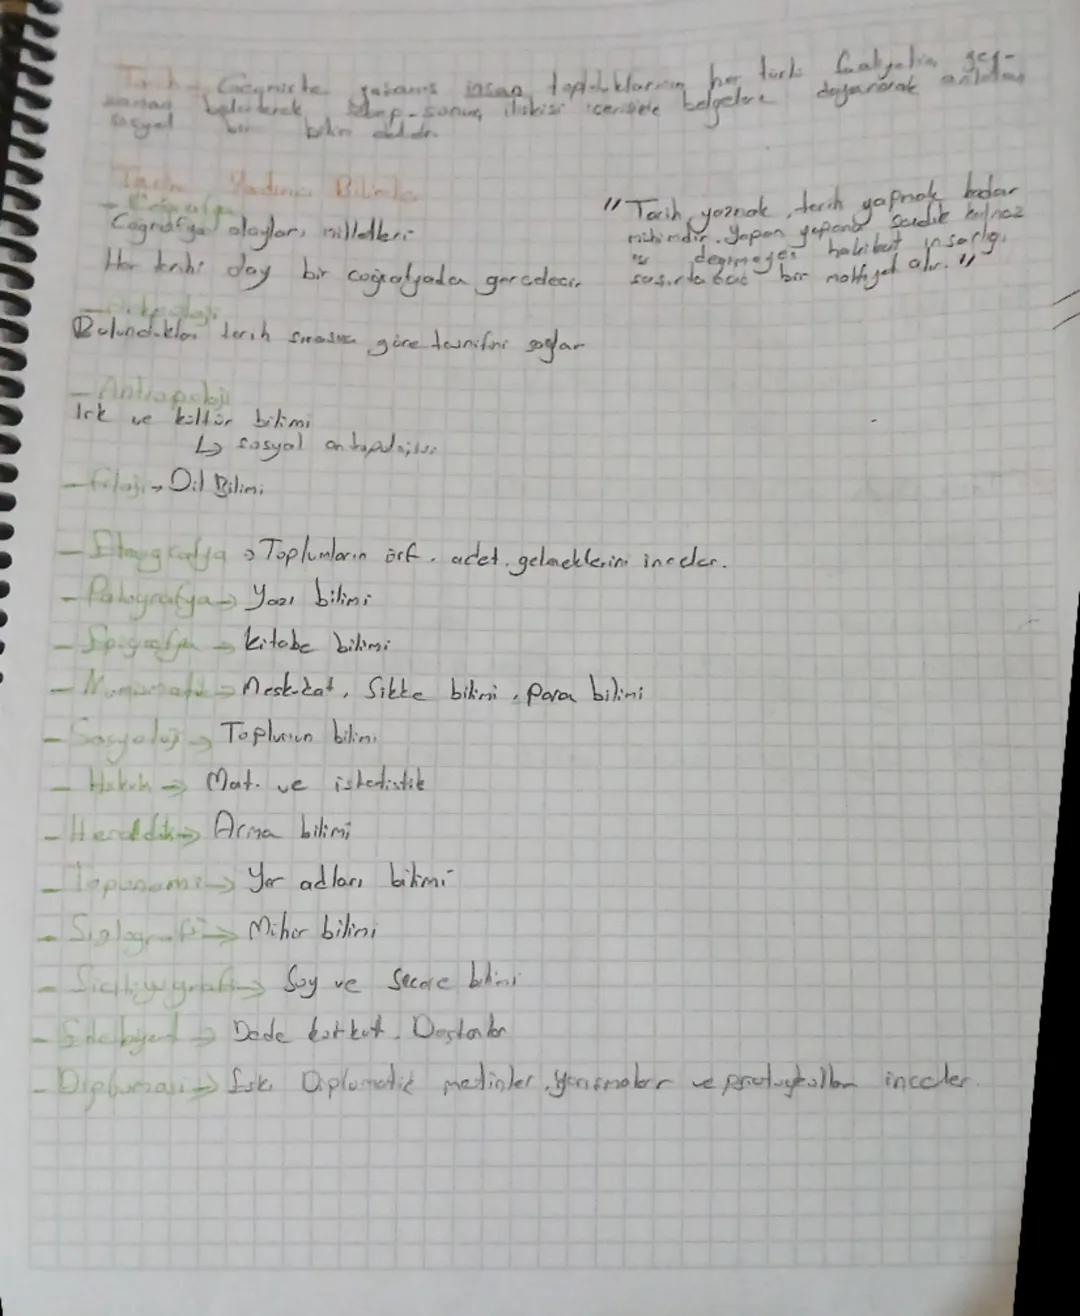 Tarih → Geçmişte yaşamış insan topluluklarının her türlü faaliyetin yer-
zaman belirterek sebep-sonuç ilişkisi içerisinde belgelere dayanarak anlatan
sosyal bir bilim dalıdır.
Tarihe Yardımcı Bilimler
- Coğrafya
Coğrafya olayları milletleri
Her tarihi olay bir coğrafyada gerçekleşir
" Tarih yazmak, tarih yapmak kadar
mühimdir. Yapan yapana sadık kalmaz
ise değişmeyen hakikat insanlığı
şaşırtacak bir mahiyet alır. "
- Arkeoloji
Bulundukları tarih sırasına göre tasnifini sağlar
- Antropoloji
Irk ve kültür bilimi
↳ sosyal antropolojisi
- Filoloji → Dil Bilimi
- Etnografya → Toplumların örf, adet, geleneklerini inceler.
- Paleografya → Yazı bilimi
- Epigrafya → kitabe bilimi
- Nümizmatik → Meskukat, Sikke bilimi, Para bilimi
- Sosyoloji → Toplumun bilimi
- Hukuk → Mat. ve istatistik
- Heraldik → Arma bilimi
- Toponomi → Yer adları bilimi
- Siglografi → Mühür bilimi
- Soy ve Secere bilimi
- Edebiyat → Dede korkut, Destanlar
- Diplomasi → Eski Diplomatik metinler, yazışmalar ve protokolları inceler.